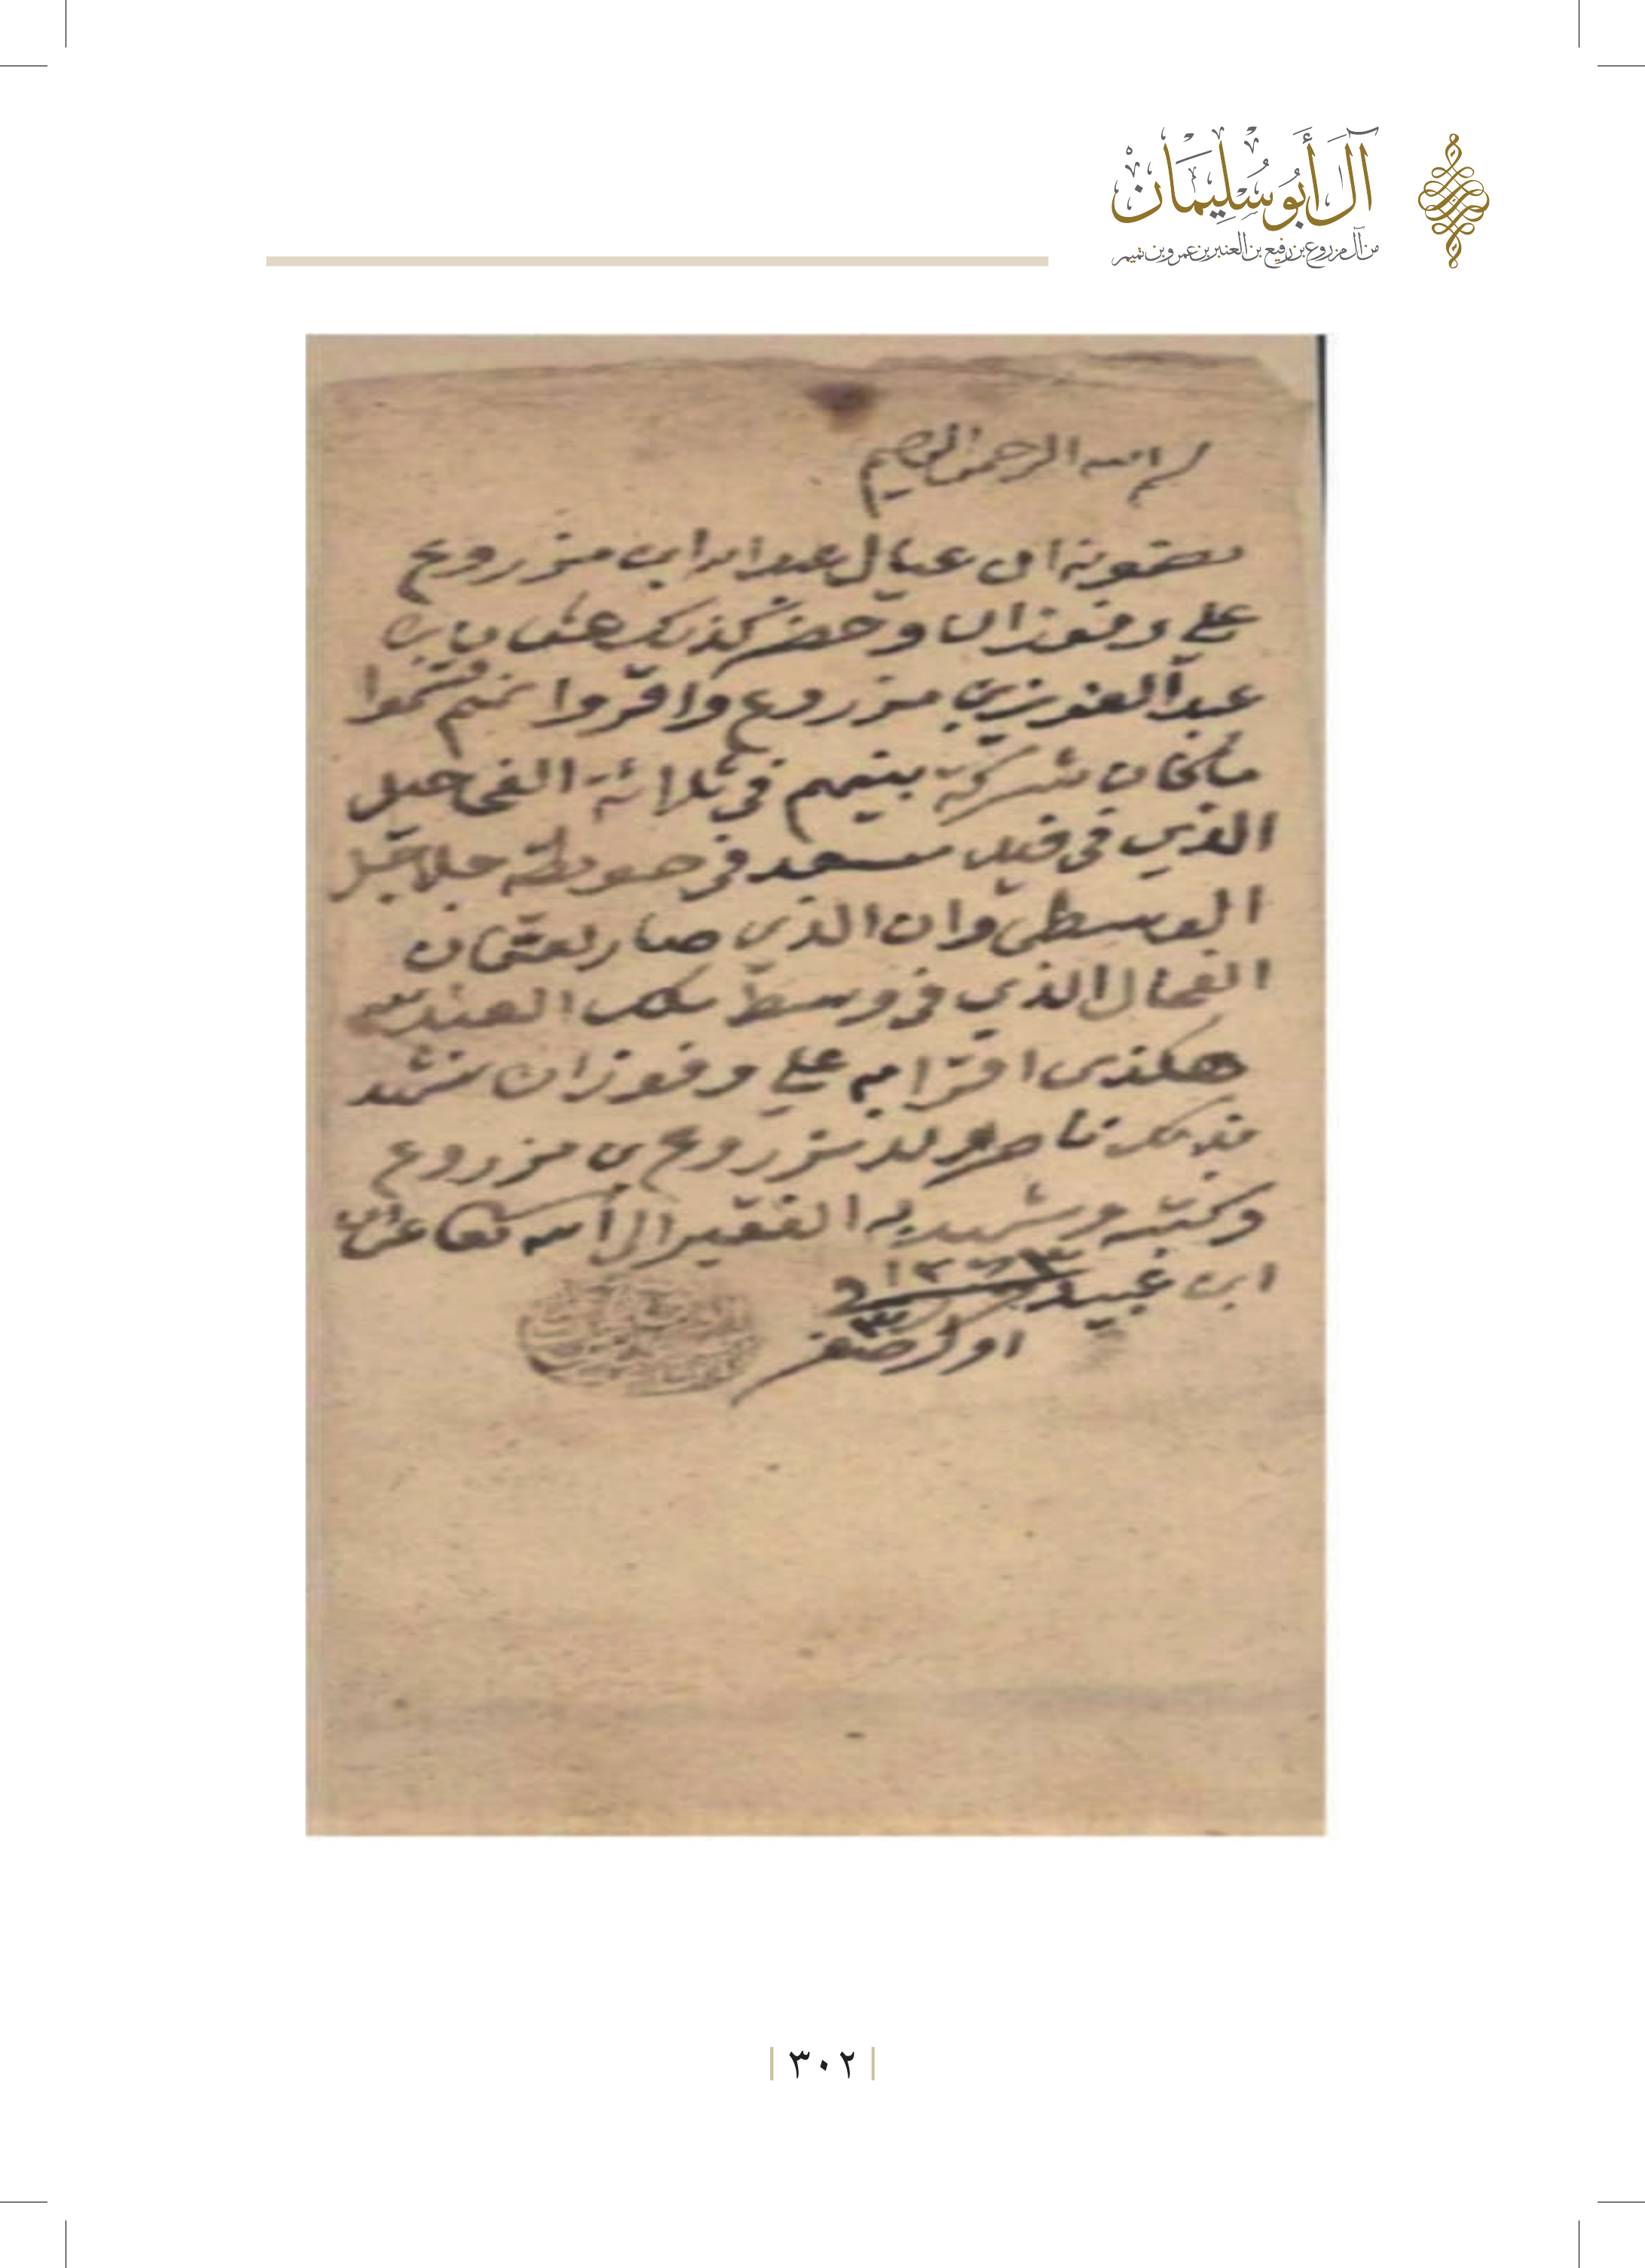 آل أبو سليمان
من آل مزروع بن رفيع بن العنبر بن عمرو بن تميم
بسم الله الرحمن الرحيم
مضمونه ان عيال عبدالله ابن مزروع
علي وفوزان وحضر كذلك عثمان بن
عبدالعزيز بن مزروع واقروا انهم قسموا
ماكان شركة بينهم في ثلاثة الفحاحيل
الذي في قبلة مسجد في حويطة
الوسطى وان الذي صار لعثمان
الفحال الذي في وسط ملك
هكذى اقرا به علي وفوزان شهد
بذلك ناصر ولد مزروع بن مزروع
وكتبه وشهد به الفقير الى الله تعالى
ابن عبيد
اول صفر
٣٠٢